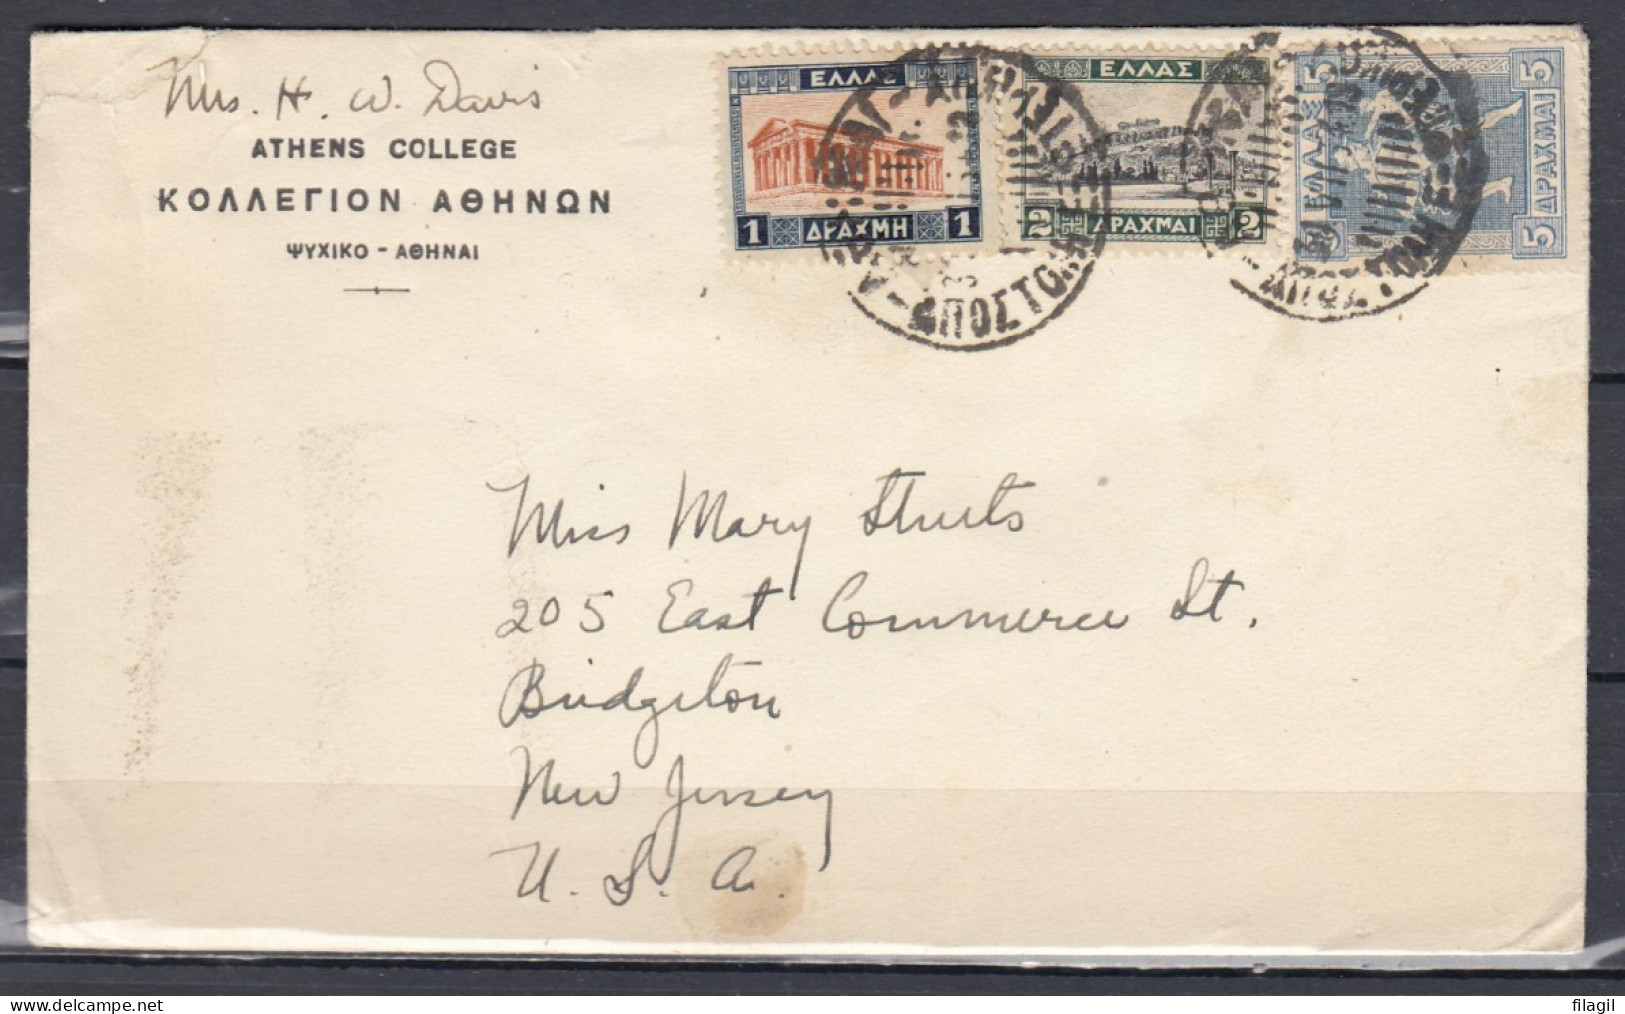 Mrs. H. W. Davis
ATHENS COLLEGE
ΚΟΛΛΕΓΙΟΝ ΑΘΗΝΩΝ
ΨΥΧΙΚΟ - ΑΘΗΝΑΙ
ΕΛΛΑΣ
1 ΔΡΑΧΜΗ 1
ΕΛΛΑΣ
2 ΔΡΑΧΜΑΙ 2
5 ΕΛΛΑΣ
5 ΔΡΑΧΜΑΙ 5
Miss Mary
205 East Commerce St.
Bridgeton
New Jersey
U. S. A.
filagil
delcampe.net